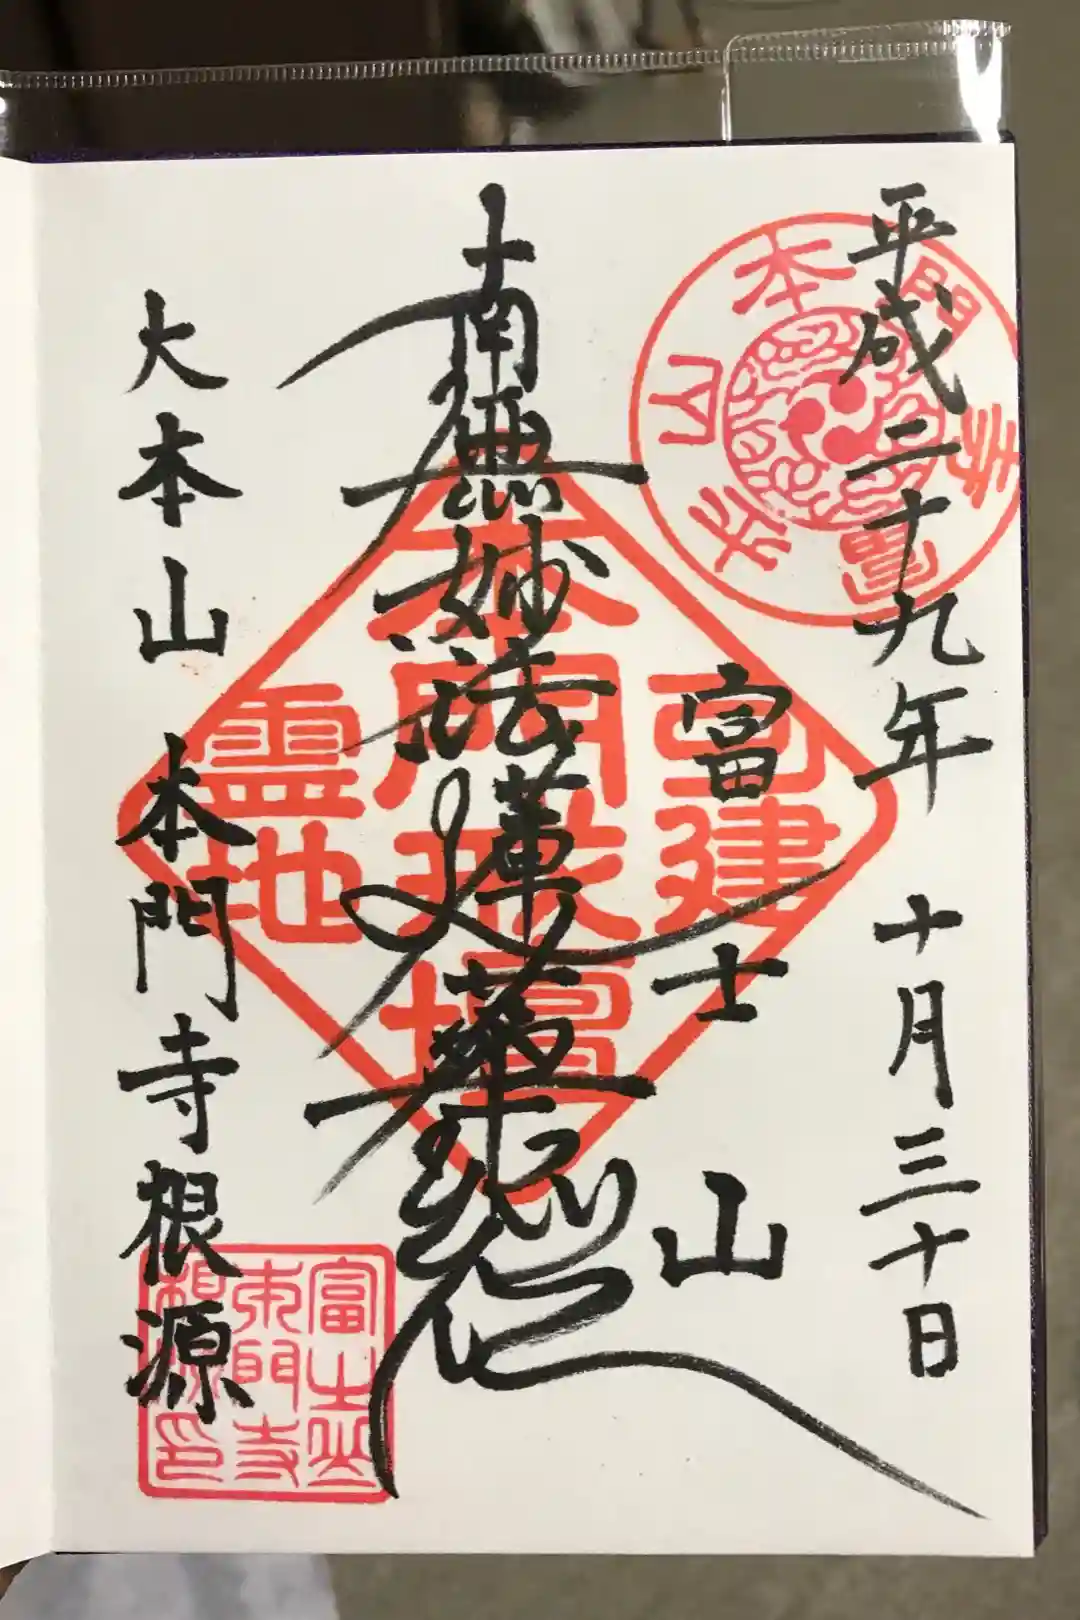 平成二十九年 十月三十日
本門寺富士山
富士山
建
南無妙法蓮華経
本門戒壇
霊地
大本山 本門寺根源
富士山
本門寺
根源印